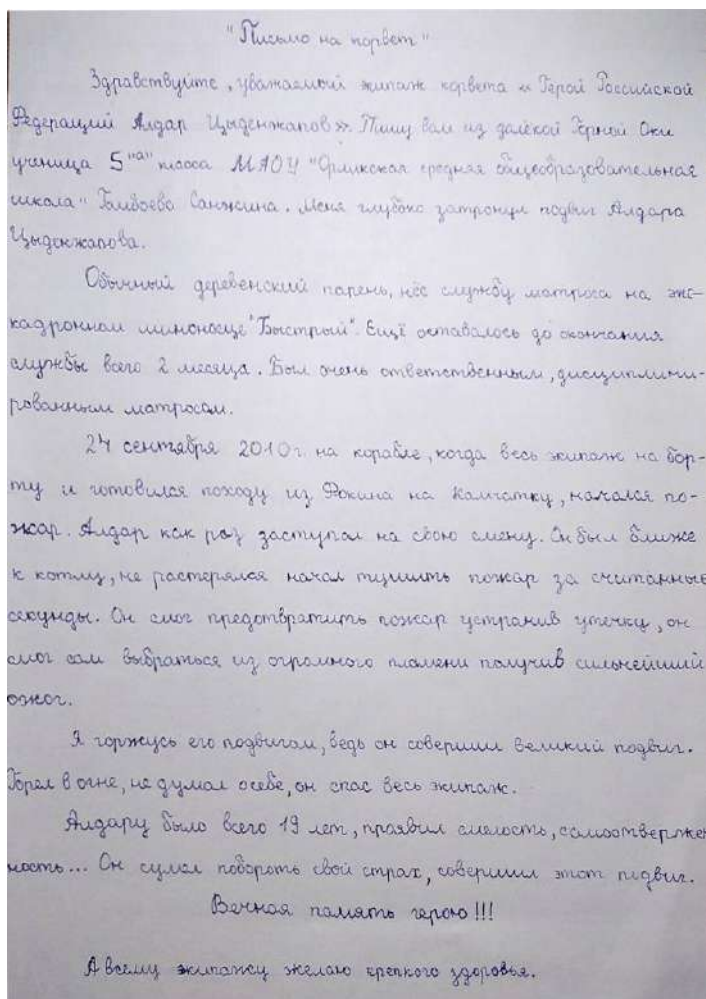 "Письмо на корвет"
Здравствуйте, уважаемый экипаж корвета «Герой Российской
Федераций Алдар Цыденжапов». Пишу вам из далёкой Горной Оки
ученица 5 "а" класса МАОУ "Орликская средняя общеобразовательная
школа" Гомбоева Санжина. Меня глубоко затронул подвиг Алдара
Цыденжапова.
Обычный деревенский парень, нёс службу матроса на эс-
кадронном миноносце "Быстрый". Ещё оставалось до окончания
службы всего 2 месяца. Был очень ответственным, дисциплини-
рованным матросом.
24 сентября 2010 г. на корабле, когда весь экипаж на бор-
ту и готовился походу из Фокина на Камчатку, начался по-
жар. Алдар как раз заступал на свою смену. Он был ближе
к котлу, не растерялся начал тушить пожар за считанные
секунды. Он смог предотвратить пожар устранив утечку, он
смог сам выбраться из огромного пламени получив сильнейший
ожог.
Я горжусь его подвигом, ведь он совершил великий подвиг.
Горел в огне, не думал о себе, он спас весь экипаж.
Алдару было всего 19 лет, проявил смелость, самоотвержен
ность... Он сумел побороть свой страх, совершил этот подвиг.
Вечная память герою!!!
А всему экипажу желаю крепкого здоровья.